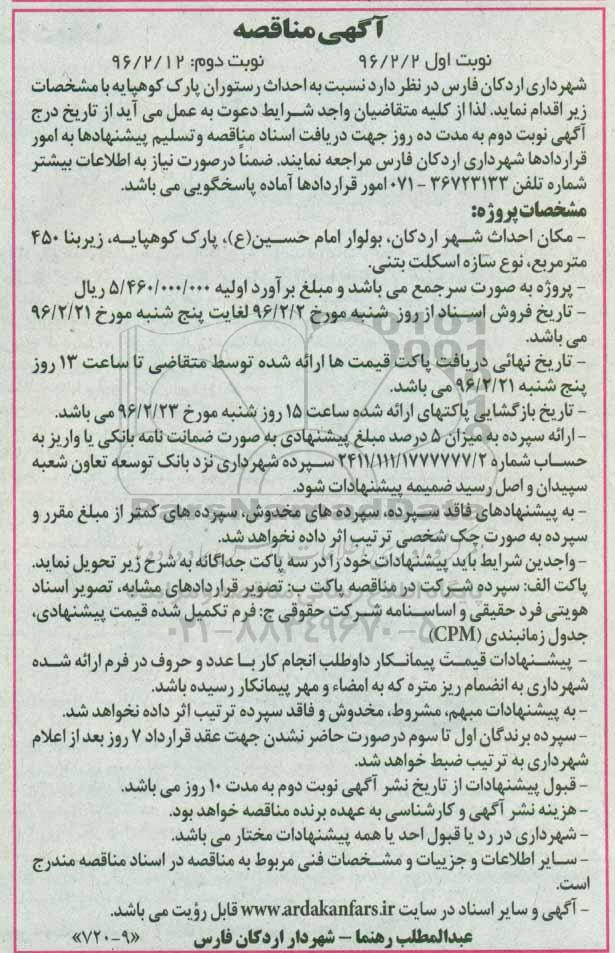 آگهی مناقصه
نوبت اول ۹۶/۲/۲ نوبت دوم: ۹۶/۲/۱۲
شهرداری اردکان فارس در نظر دارد نسبت به احداث رستوران پارک کوهپایه با مشخصات
زیر اقدام نماید. لذا از کلیه متقاضیان واجد شرایط دعوت به عمل می آید از تاریخ درج
آگهی نوبت دوم به مدت ده روز جهت دریافت اسناد مناقصه وتسلیم پیشنهادها به امور
قراردادها شهرداری اردکان فارس مراجعه نمایند. ضمناً درصورت نیاز به اطلاعات بیشتر
شماره تلفن ۳۶۷۲۳۱۳۳ - ۰۷۱ امور قراردادها آماده پاسخگویی می باشد.
مشخصات پروژه:
- مکان احداث شهر اردکان، بولوار امام حسین(ع)، پارک کوهپایه، زیربنا ۴۵۰
مترمربع، نوع سازه اسکلت بتنی.
- پروژه به صورت سرجمع می باشد و مبلغ برآورد اولیه ۵/۴۶۰/۰۰۰/۰۰۰ ریال
- تاریخ فروش اسناد از روز شنبه مورخ ۹۶/۲/۲ لغایت پنج شنبه مورخ ۹۶/۲/۲۱
می باشد.
- تاریخ نهائی دریافت پاکت قیمت ها ارائه شده توسط متقاضی تا ساعت ۱۳ روز
پنج شنبه ۹۶/۲/۲۱ می باشد.
- تاریخ بازگشایی پاکتهای ارائه شده ساعت ۱۵ روز شنبه مورخ ۹۶/۲/۲۳ می باشد.
- ارائه سپرده به میزان ۵ درصد مبلغ پیشنهادی به صورت ضمانت نامه بانکی یا واریز به
حساب شماره ۲۴۱۱/۱۱۱/۱۷۷۷۷۷۷/۲ سپرده شهرداری نزد بانک توسعه تعاون شعبه
سپیدان و اصل رسید ضمیمه پیشنهادات شود.
- به پیشنهادهای فاقد سپرده، سپرده های مخدوش، سپرده های کمتر از مبلغ مقرر و
سپرده به صورت چک شخصی ترتیب اثر داده نخواهد شد.
- واجدین شرایط باید پیشنهادات خود را در سه پاکت جداگانه به شرح زیر تحویل نماید.
پاکت الف: سپرده شرکت در مناقصه پاکت ب: تصویر قراردادهای مشابه، تصویر اسناد
هویتی فرد حقیقی و اساسنامه شرکت حقوقی ج: فرم تکمیل شده قیمت پیشنهادی،
جدول زمانبندی (CPM)
- پیشنهادات قیمت پیمانکار داوطلب انجام کار با عدد و حروف در فرم ارائه شده
شهرداری به انضمام ریز متره که به امضاء و مهر پیمانکار رسیده باشد.
- به پیشنهادات مبهم، مشروط، مخدوش و فاقد سپرده ترتیب اثر داده نخواهد شد.
- سپرده برندگان اول تا سوم درصورت حاضر نشدن جهت عقد قرارداد ۷ روز بعد از اعلام
شهرداری به ترتیب ضبط خواهد شد.
- قبول پیشنهادات از تاریخ نشر آگهی نوبت دوم به مدت ۱۰ روز می باشد.
- هزینه نشر آگهی و کارشناسی به عهده برنده مناقصه خواهد بود.
- شهرداری در رد یا قبول احد یا همه پیشنهادات مختار می باشد.
- سایر اطلاعات و جزییات و مشخصات فنی مربوط به مناقصه در اسناد مناقصه مندرج
است.
- آگهی و سایر اسناد در سایت www.ardakanfars.ir قابل رؤیت می باشد.
عبدالمطلب رهنما - شهردار اردکان فارس «۷۲۰-۹»
ParsNamadData
۰۲۱-۸۸۳۴۹۶۷۰-۵